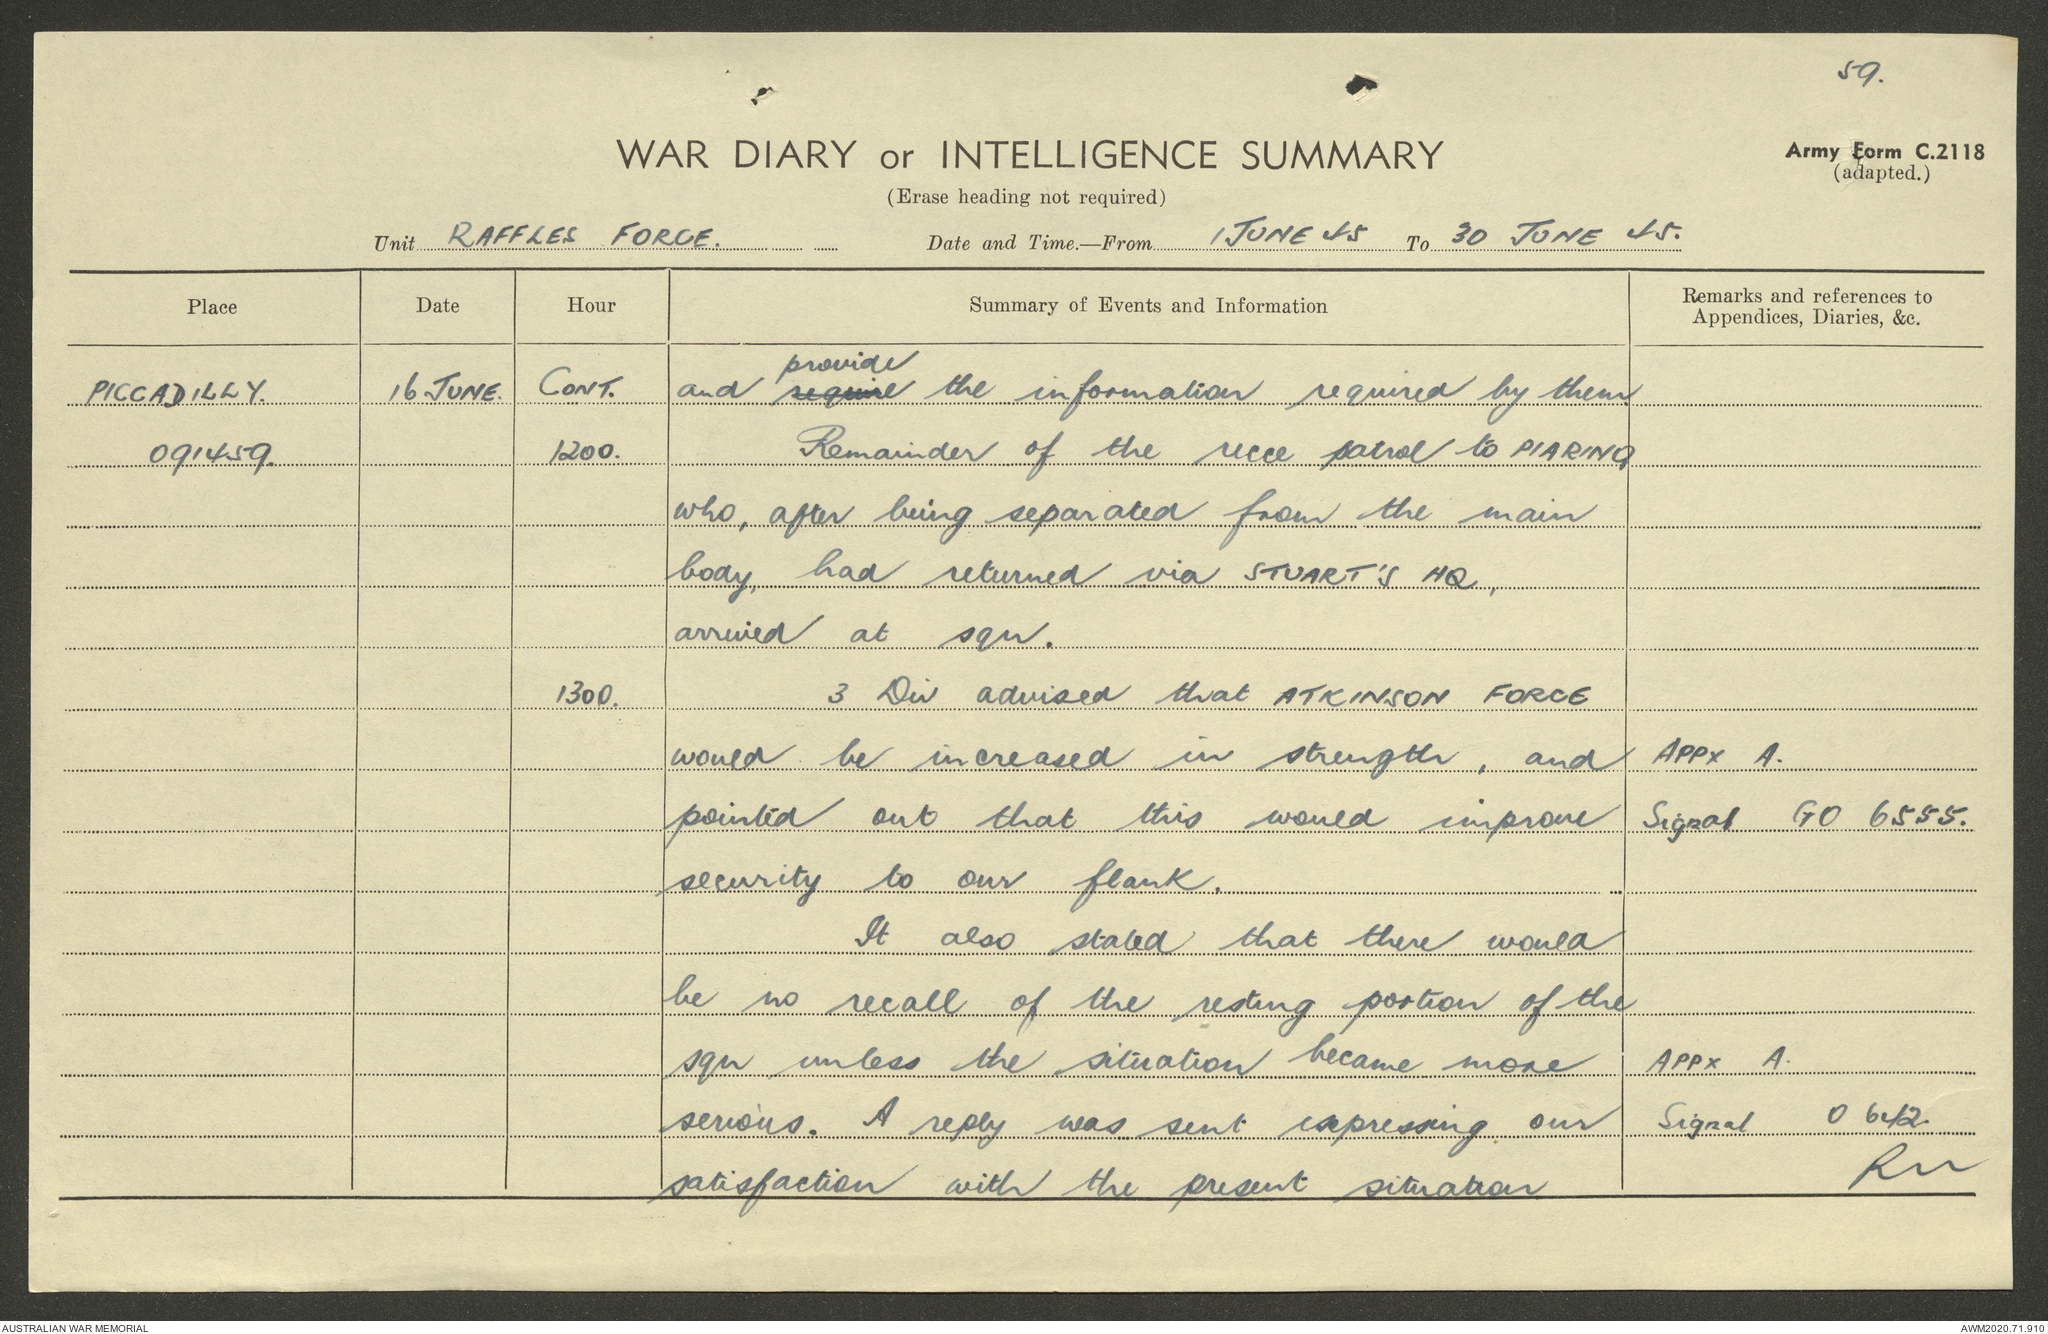 59.
WAR DIARY or INTELLIGENCE SUMMARY
Army Form C.2118
(adapted.)
(Erase heading not required)
Unit RAFFLES FORCE. Date and Time.—From 1 JUNE 45 To 30 JUNE 45.
Place Date Hour Summary of Events and Information Remarks and references to
Appendices, Diaries, &c.
provide
PICCADILLY. 16 JUNE. CONT. and require the information required by them.
091459. 1200. Remainder of the recce patrol to PIARINO
who, after being separated from the main
body, had returned via STUART'S HQ,
arrived at sqn.
1300. 3 Div advised that ATKINSON FORCE
would be increased in strength, and APPX A.
pointed out that this would improve Signal GO 6555.
security to our flank.
It also stated that there would
be no recall of the resting portion of the
sqn unless the situation became more APPX A.
serious. A reply was sent expressing our Signal O 642.
satisfaction with the present situation
AUSTRALIAN WAR MEMORIAL AWM2020.71.910